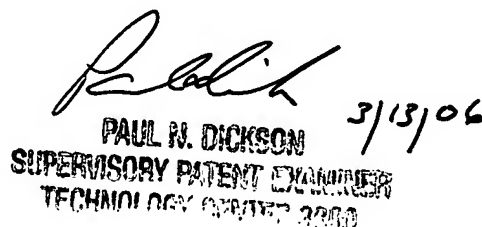 3/13/06
PAUL N. DICKSON
SUPERVISORY PATENT EXAMINER
TECHNOLOGY CENTER